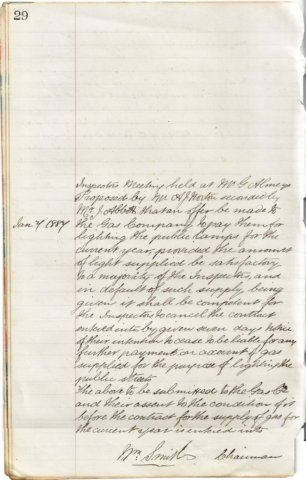 29
Inspectors Meeting held at Mr G Almey's
Proposed by Mr A J Horton seconded by
Jan 7 1887 Mr J Abbott that an offer be made to
the Gas Company to pay them for
lighting the public Lamps for the
current year, provided the amount
of light supplied be satisfactory
to a majority of the Inspectors, and
in default of such supply being
given it shall be competent for
the Inspectors to cancel the contract
entered into by given seven days notice
of their intention to cease to be liable for any
further payment on account of gas
supplied for the purpose of lighting the
public streets
The above to be submitted to the Gas Co
and their assent to the condition
before the contract for the supply of gas for
the current year is entered into
Wm Smith Chairman